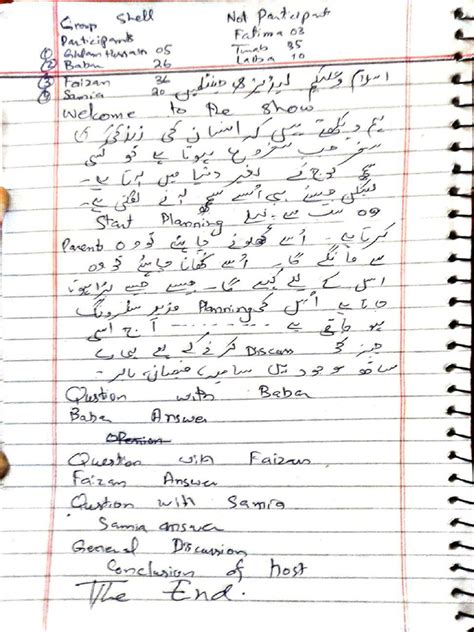 Group Shell Not Participants
Participants Fatima 03
① Ghulam Hussain 05 35
② Babar 26 Laiba 10
③ Faizan 36
④ Samia 20 اسلام و علیکم لیڈیز
Welcome to the show
ہم دیکھتے ہیں کہ انسان کی زندگی کا
سفر جب شروع ہوتا ہے تو
کے بغیر دنیا میں آتا ہے۔
لیکن جیسے ہی اُسے سمجھ آنے لگتی ہے۔
وہ سب سے پہلے Planning Start
کرتا ہے۔ اُسے کھلونے چاہیئے تو وہ Parents
سے مانگے گا۔ اُسے کھانا چاہیئے تو وہ
اس کے لیے کہے گا۔ جیسے جیسے بڑا ہوتا
جاتا ہے اُس کی Planning مزید سٹرونگ
ہو جاتی ہے ---------- آج اسی
چیز کو Discuss کرنے کے لیے ہمارے
ساتھ موجود ہیں سامیہ، فیضان، بابر۔
Question with Babar
Babar Answer
Question with Faizan
Faizan Answer
Question with Samia
Samia answer
General Discussion
Conclusion of host
The End.